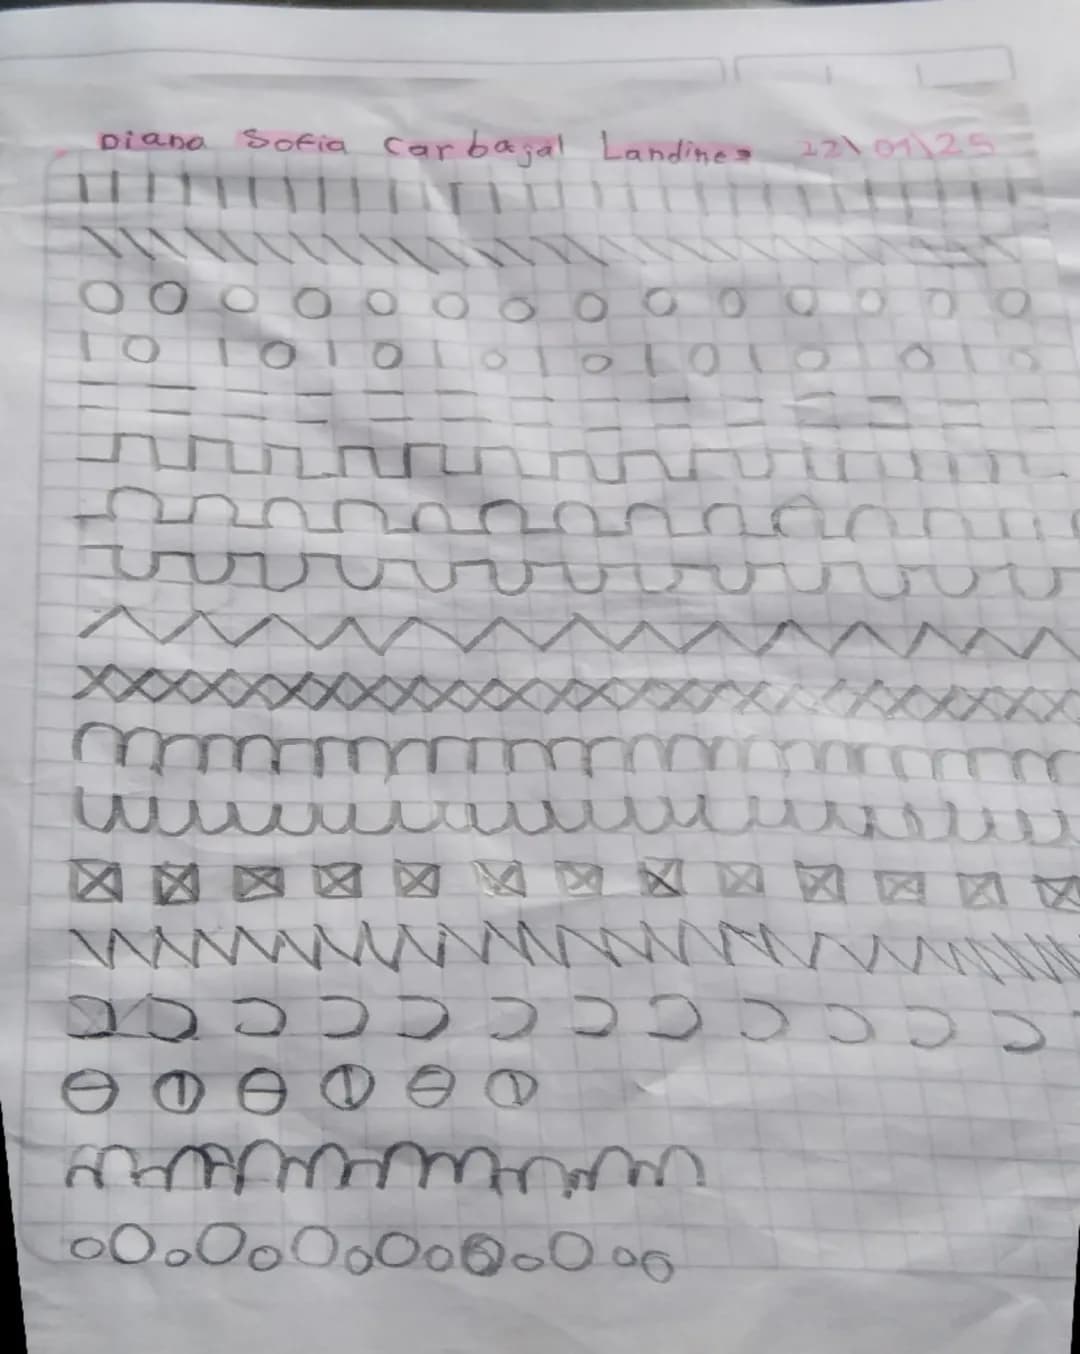 Diana Sofia Carbajal Landines 22\01\25